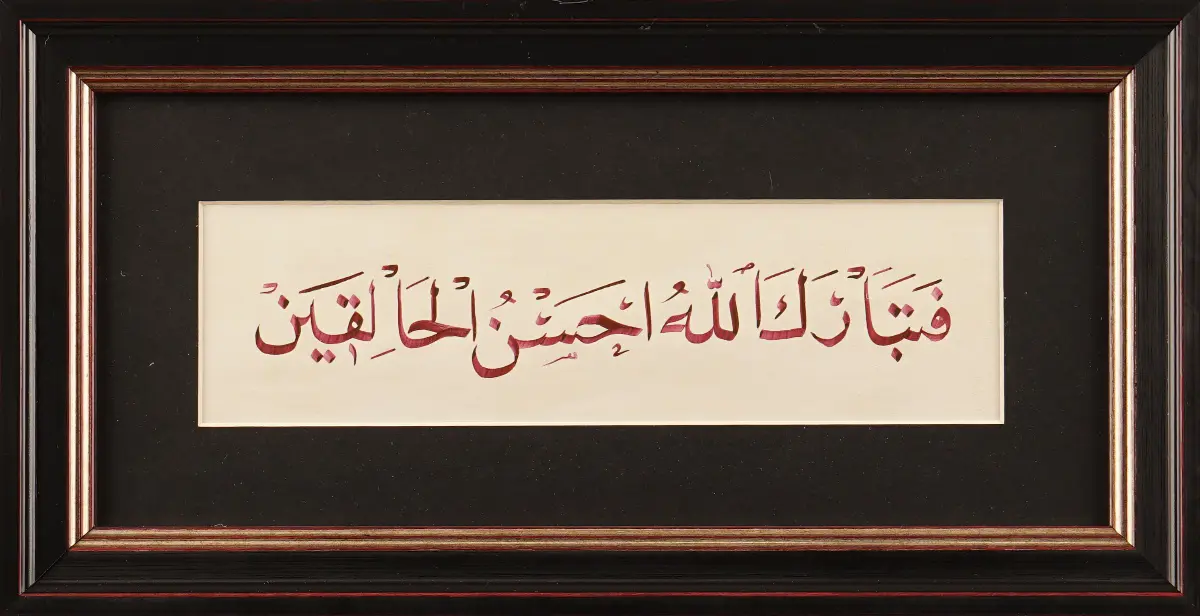 فَتَبَاْرَكَ اَللّٰهُ احسَنُ الْخَالِقَيَنْ